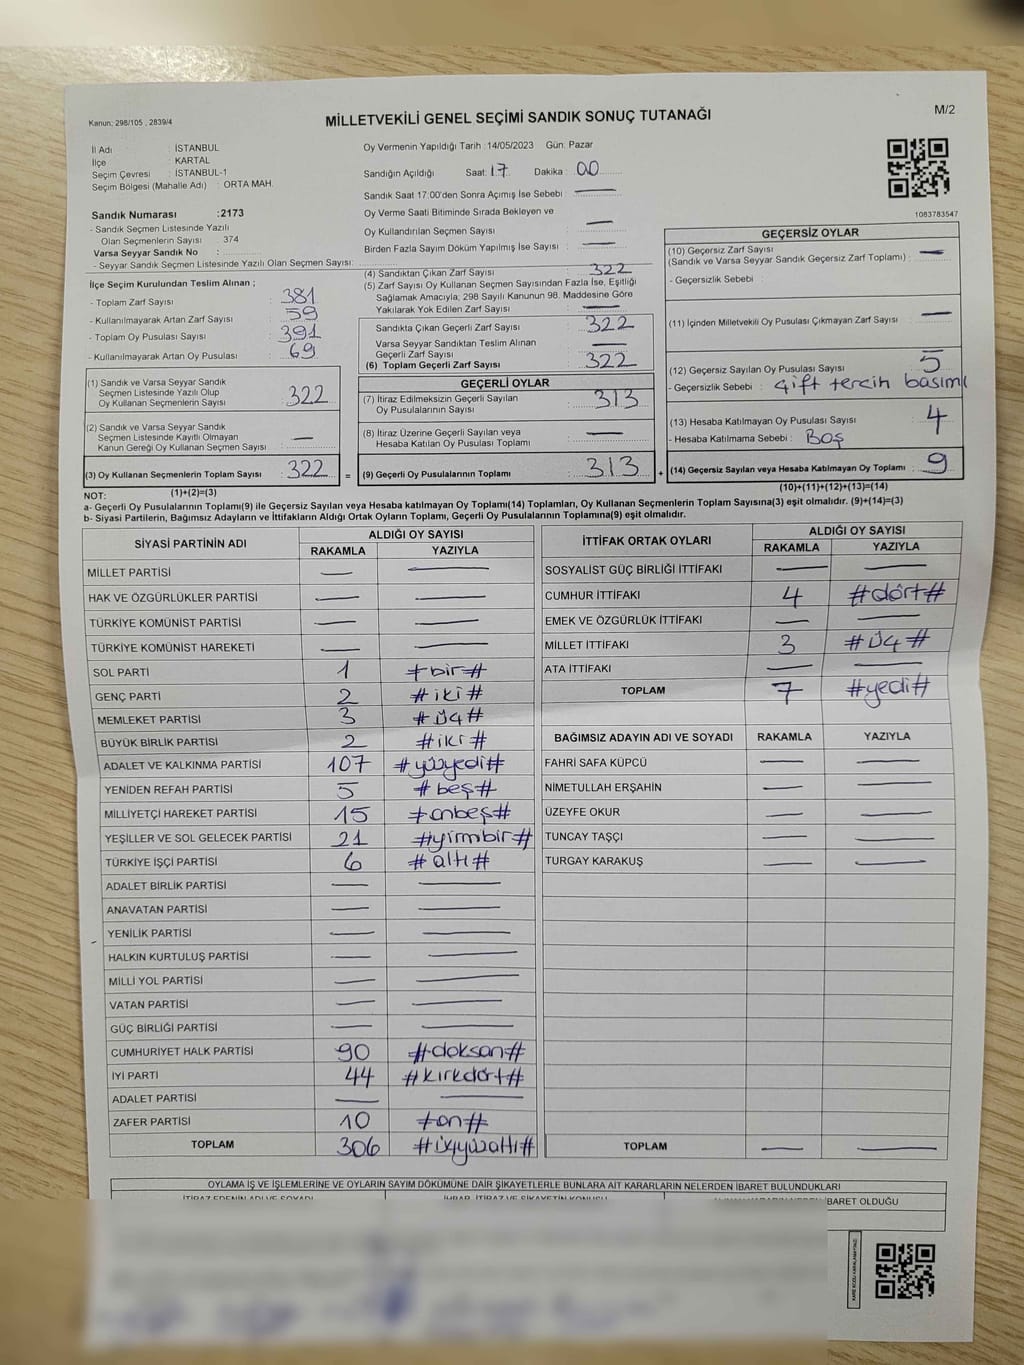 Kanun: 298/105 , 2839/4
MİLLETVEKİLİ GENEL SEÇİMİ SANDIK SONUÇ TUTANAĞI
M/2
İl Adı : İSTANBUL
İlçe : KARTAL
Seçim Çevresi : İSTANBUL-1
Seçim Bölgesi (Mahalle Adı) : ORTA MAH.
Sandık Numarası :2173
- Sandık Seçmen Listesinde Yazılı
Olan Seçmenlerin Sayısı : 374
Varsa Seyyar Sandık No :
- Seyyar Sandık Seçmen Listesinde Yazılı Olan Seçmen Sayısı:
Oy Vermenin Yapıldığı Tarih :14/05/2023 Gün: Pazar
Sandığın Açıldığı Saat: 17 Dakika : 00
Sandık Saat 17:00'den Sonra Açımış İse Sebebi : —
Oy Verme Saati Bitiminde Sırada Bekleyen ve
Oy Kullandırılan Seçmen Sayısı : —
Birden Fazla Sayım Döküm Yapılmış İse Sayısı : —
1083783547
İlçe Seçim Kurulundan Teslim Alınan ;
- Toplam Zarf Sayısı : 381
- Kullanılmayarak Artan Zarf Sayısı : 59
- Toplam Oy Pusulası Sayısı : 391
- Kullanılmayarak Artan Oy Pusulası : 69
(1) Sandık ve Varsa Seyyar Sandık
Seçmen Listesinde Yazılı Olup
Oy Kullanan Seçmenlerin Sayısı : 322
(2) Sandık ve Varsa Seyyar Sandık
Seçmen Listesinde Kayıtlı Olmayan
Kanun Gereği Oy Kullanan Seçmen Sayısı : —
(3) Oy Kullanan Seçmenlerin Toplam Sayısı : 322 =
(1)+(2)=(3)
(4) Sandıktan Çıkan Zarf Sayısı : 322
(5) Zarf Sayısı Oy Kullanan Seçmen Sayısından Fazla İse, Eşitliği
Sağlamak Amacıyla; 298 Sayılı Kanunun 98. Maddesine Göre
Yakılarak Yok Edilen Zarf Sayısı : —
Sandıkta Çıkan Geçerli Zarf Sayısı : 322
Varsa Seyyar Sandıktan Teslim Alınan
Geçerli Zarf Sayısı : —
(6) Toplam Geçerli Zarf Sayısı : 322
GEÇERLİ OYLAR
(7) İtiraz Edilmeksizin Geçerli Sayılan
Oy Pusulalarının Sayısı : 313
(8) İtiraz Üzerine Geçerli Sayılan veya
Hesaba Katılan Oy Pusulası Toplamı : —
(9) Geçerli Oy Pusulalarının Toplamı : 313 +
GEÇERSİZ OYLAR
(10) Geçersiz Zarf Sayısı
(Sandık ve Varsa Seyyar Sandık Geçersiz Zarf Toplamı) : —
- Geçersizlik Sebebi :
(11) İçinden Milletvekili Oy Pusulası Çıkmayan Zarf Sayısı : —
(12) Geçersiz Sayılan Oy Pusulası Sayısı : 5
- Geçersizlik Sebebi : Çift tercih basımı
(13) Hesaba Katılmayan Oy Pusulası Sayısı : 4
- Hesaba Katılmama Sebebi : Boş
(14) Geçersiz Sayılan veya Hesaba Katılmayan Oy Toplamı : 9
(10)+(11)+(12)+(13)=(14)
NOT:
a- Geçerli Oy Pusulalarının Toplamı(9) ile Geçersiz Sayılan veya Hesaba katılmayan Oy Toplamı(14) Toplamları, Oy Kullanan Seçmenlerin Toplam Sayısına(3) eşit olmalıdır. (9)+(14)=(3)
b- Siyasi Partilerin, Bağımsız Adayların ve İttifakların Aldığı Ortak Oyların Toplamı, Geçerli Oy Pusulalarının Toplamına(9) eşit olmalıdır.
SİYASİ PARTİNİN ADI ALDIĞI OY SAYISI
RAKAMLA YAZIYLA
MİLLET PARTİSİ — —
HAK VE ÖZGÜRLÜKLER PARTİSİ — —
TÜRKİYE KOMÜNİST PARTİSİ — —
TÜRKİYE KOMÜNİST HAREKETİ — —
SOL PARTİ 1 #bir#
GENÇ PARTİ 2 #iki#
MEMLEKET PARTİSİ 3 #üç#
BÜYÜK BİRLİK PARTİSİ 2 #iki#
ADALET VE KALKINMA PARTİSİ 107 #yüzyedi#
YENİDEN REFAH PARTİSİ 5 #beş#
MİLLİYETÇİ HAREKET PARTİSİ 15 #onbeş#
YEŞİLLER VE SOL GELECEK PARTİSİ 21 #yirmibir#
TÜRKİYE İŞÇİ PARTİSİ 6 #altı#
ADALET BİRLİK PARTİSİ — —
ANAVATAN PARTİSİ — —
YENİLİK PARTİSİ — —
HALKIN KURTULUŞ PARTİSİ — —
MİLLİ YOL PARTİSİ — —
VATAN PARTİSİ — —
GÜÇ BİRLİĞİ PARTİSİ — —
CUMHURİYET HALK PARTİSİ 90 #doksan#
İYİ PARTİ 44 #kırkdört#
ADALET PARTİSİ — —
ZAFER PARTİSİ 10 #on#
TOPLAM 306 #üçyüzaltı#
İTTİFAK ORTAK OYLARI ALDIĞI OY SAYISI
RAKAMLA YAZIYLA
SOSYALİST GÜÇ BİRLİĞİ İTTİFAKI — —
CUMHUR İTTİFAKI 4 #dört#
EMEK VE ÖZGÜRLÜK İTTİFAKI — —
MİLLET İTTİFAKI 3 #üç#
ATA İTTİFAKI — —
TOPLAM 7 #yedi#
BAĞIMSIZ ADAYIN ADI VE SOYADI RAKAMLA YAZIYLA
FAHRİ SAFA KÜPCÜ — —
NİMETULLAH ERŞAHİN — —
ÜZEYFE OKUR — —
TUNCAY TAŞÇI — —
TURGAY KARAKUŞ — —
TOPLAM — —
OYLAMA İŞ VE İŞLEMLERİNE VE OYLARIN SAYIM DÖKÜMÜNE DAİR ŞİKAYETLERLE BUNLARA AİT KARARLARIN NELERDEN İBARET BULUNDUKLARI
İBARET OLDUĞU